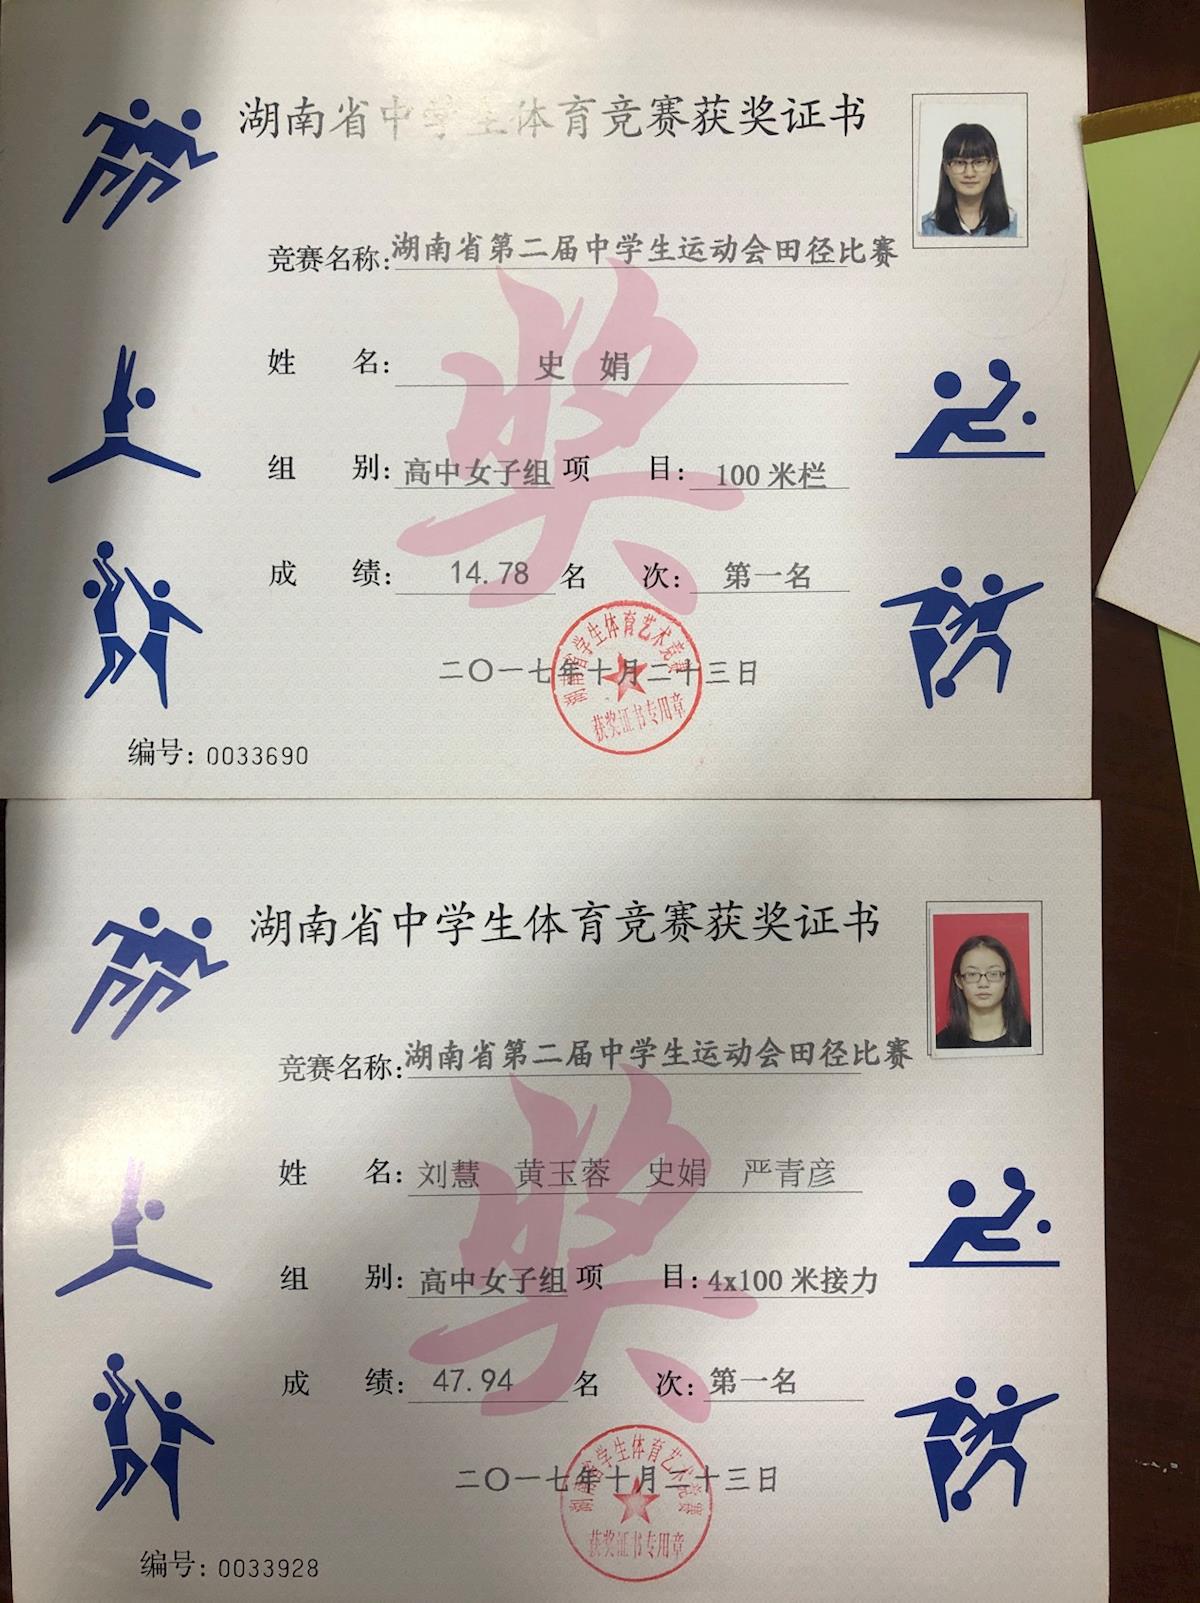 湖南省中学生体育竞赛获奖证书
竞赛名称:湖南省第二届中学生运动会田径比赛
姓 名: 史 娟
组 别: 高中女子组 项 目: 100 米栏
成 绩: 14.78 名 次: 第一名
二〇一七年十月二十三日
湖南省学生体育艺术竞赛
获奖证书专用章
编号: 0033690
湖南省中学生体育竞赛获奖证书
竞赛名称:湖南省第二届中学生运动会田径比赛
姓 名: 刘慧 黄玉蓉 史娟 严青彦
组 别: 高中女子组 项 目: 4x100 米接力
成 绩: 47.94 名 次: 第一名
二〇一七年十月二十三日
湖南省学生体育艺术竞赛
获奖证书专用章
编号: 0033928
奖
奖